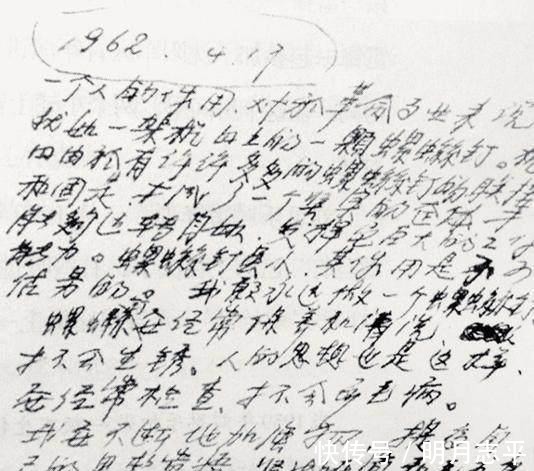 1962.4.7
一个人的作用,对于革命事业来说
就如一架机器上的一颗螺丝钉。机
由于有许许多多的螺丝钉的联接
和固定,才成了一个坚实的整体,才
能够运转自如,发挥它巨大的工作
能力。螺丝钉虽小,其作用是不可
估量的。我愿永远做一个螺丝钉
螺丝钉要经常保养和清洗
才不会生锈。人的思想也是这样,
要经常检查,才不会出毛病。
我要不断地加强学习,提高自
己的思想觉悟,坚
快传号/明月志平